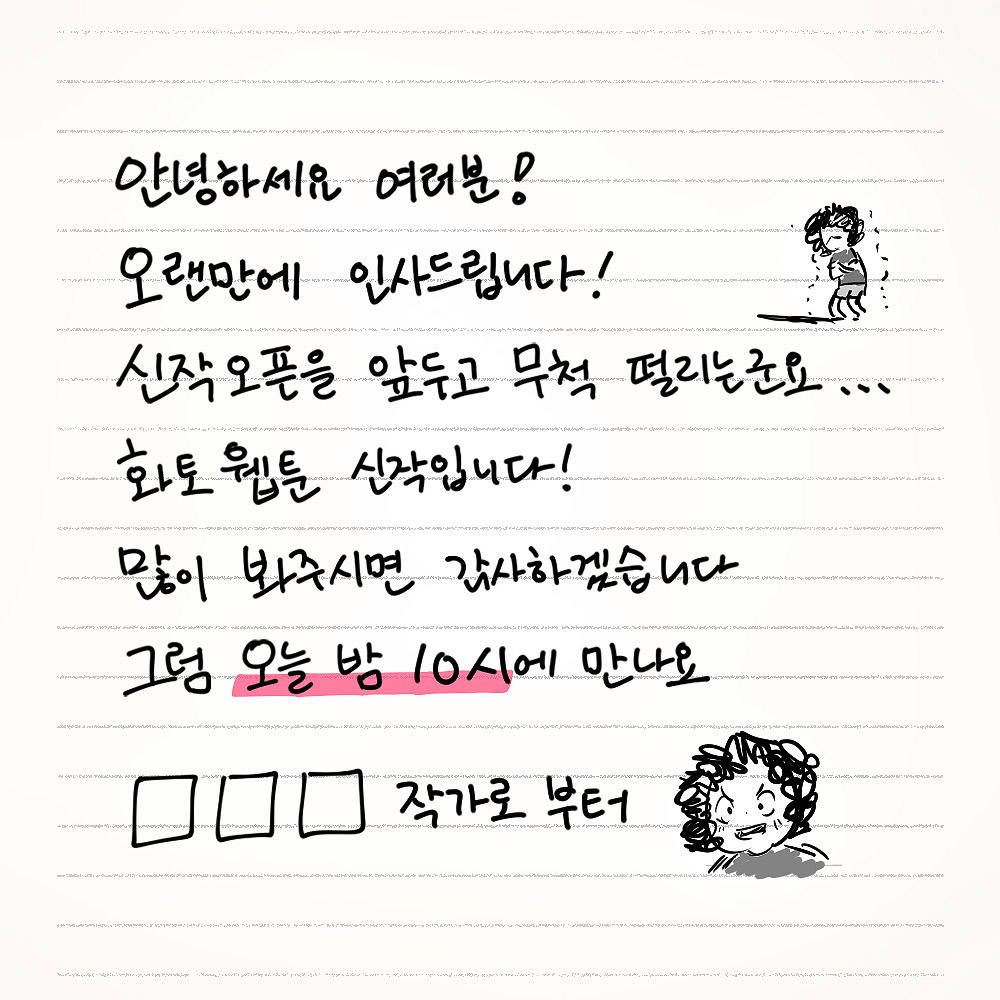 안녕하세요 여러분!
오랜만에 인사드립니다!
신작오픈을 앞두고 무척 떨리는군요...
화토웹툰 신작입니다!
많이 봐주시면 감사하겠습니다
그럼 오늘 밤 10시에 만나요
□□□ 작가로 부터